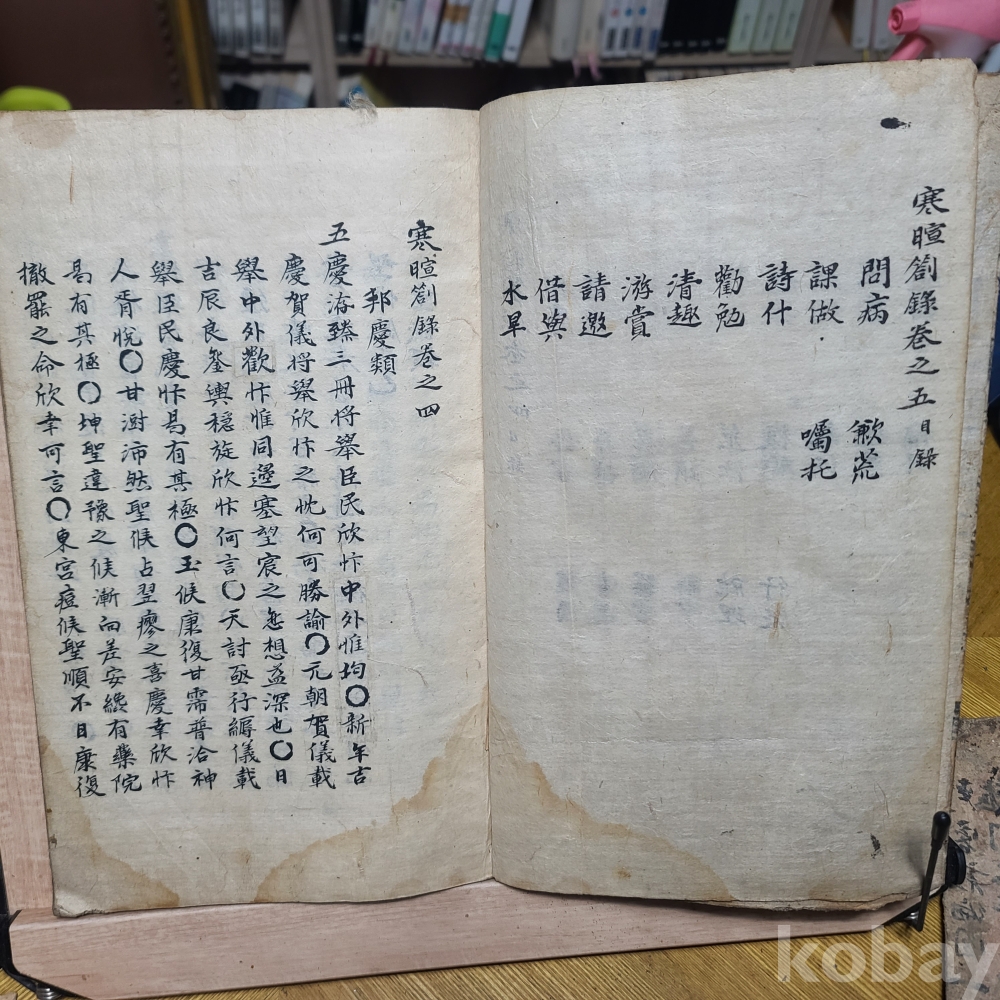 寒暄劄錄卷之五目錄
問病 歉荒
課做 囑托
詩什
勸勉
清趣
游賞
請邀
借與
水旱
寒暄劄錄卷之四
邦慶類
五慶洊臻三冊將擧臣民欣忭中外惟均〇新年吉
慶賀儀將擧欣忭之忱何可勝諭〇元朝賀儀載
擧中外歡忭惟同邊塞望宸之悲想益深也〇日
吉辰良鑾輿穩旋欣忭何言〇天討亟行縟儀載
擧臣民慶忭曷有其極〇玉候康復甘霈普洽神
人胥悅〇甘澍沛然聖候占翌瘳之喜慶幸欣忭
曷有其極〇坤聖違豫之候漸向差安纔有藥院
撤罷之命欣幸可言〇東宮痘候聖順不日康復
kobay